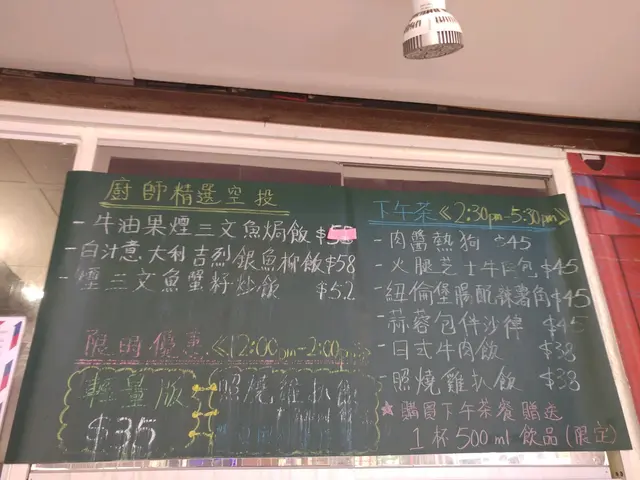 廚師精選空投
- 牛油果煙三文魚焗飯 $58
- 白汁意大利吉烈銀魚柳飯 $58
- 煙三文魚蟹籽炒飯 $52
限時優惠《12:00pm-2:00pm》
輕量版
$35
照燒雞扒飯
下午茶《2:30pm-5:30pm》
- 肉醬熱狗 $45
- 火腿芝士牛角包 $45
- 紐倫堡腸配辣薯角 $45
- 蒜蓉包伴沙律 $45
- 日式牛肉飯 $38
- 照燒雞扒飯 $38
★ 購買下午茶餐贈送
1杯 500ml 飲品 (限定)